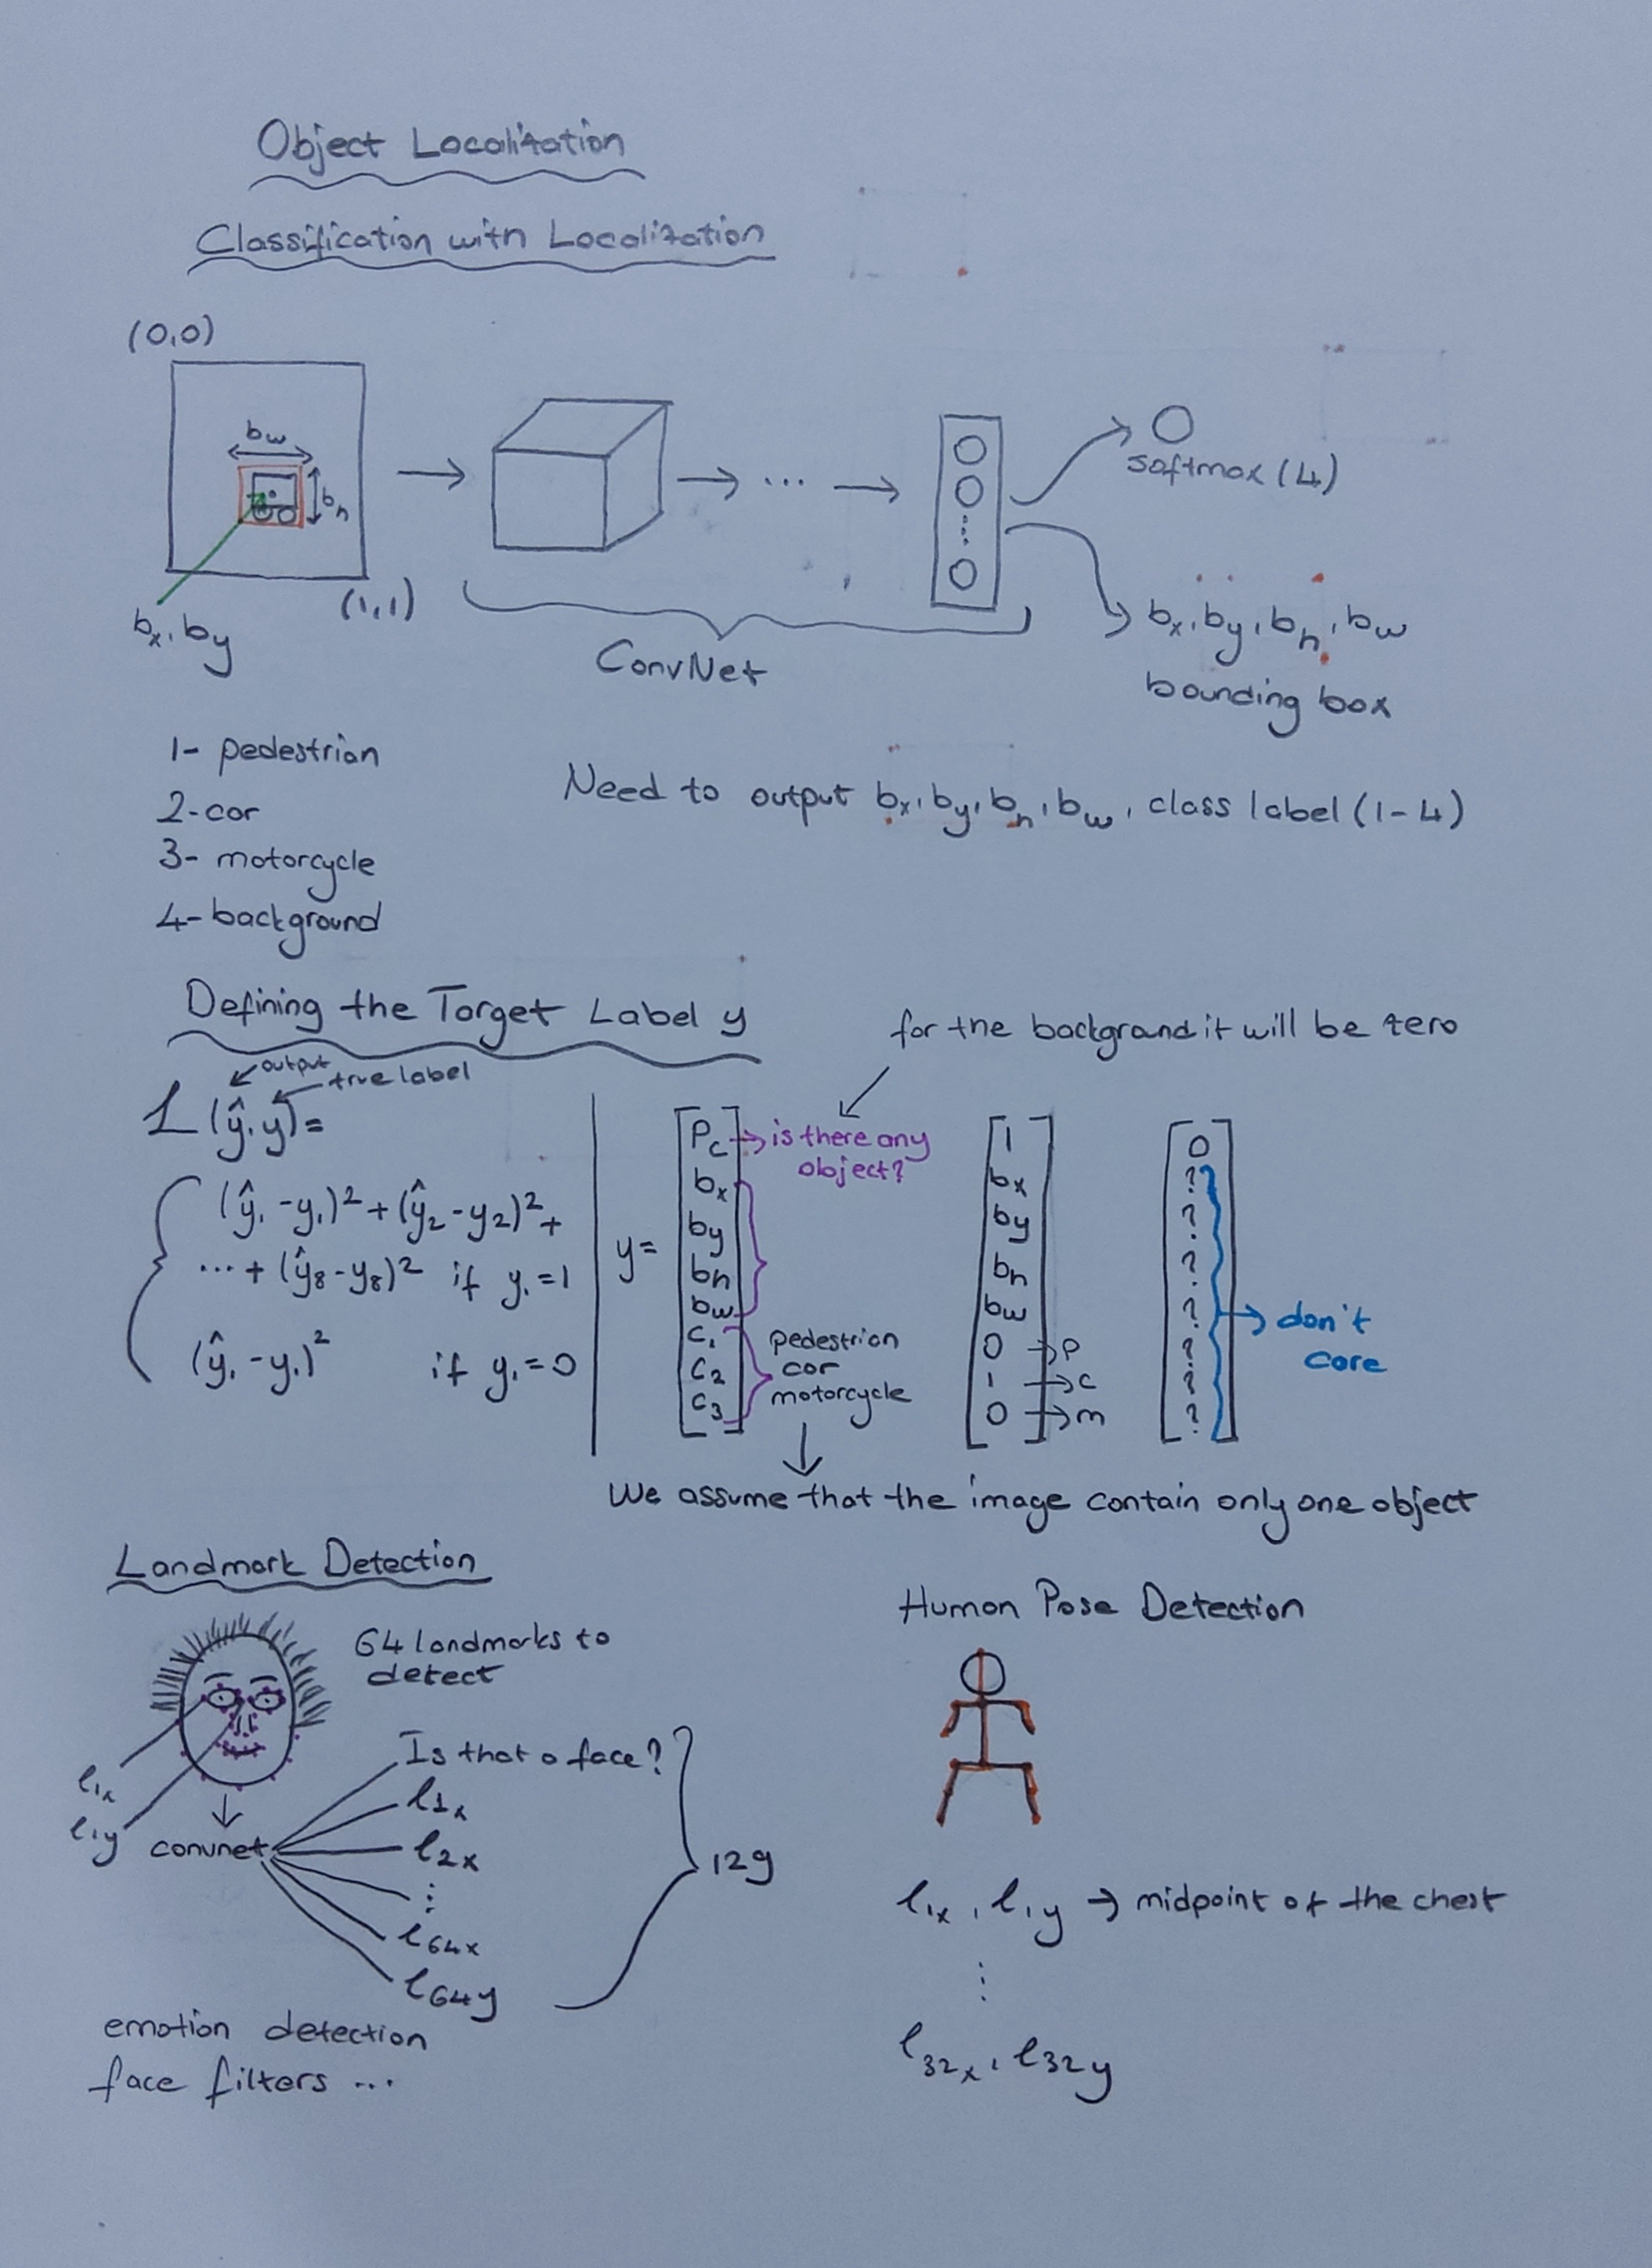 Object Localization
Classification with Localization
(0,0)
bw
bh
(1,1)
bx, by
...
ConvNet
softmax (4)
bx, by, bh, bw
bounding box
1- pedestrian
2- car
3- motorcycle
4- background
Need to output bx, by, bh, bw, class label (1-4)
Defining the Target Label y
output
true label
L(ŷ,y)=
(ŷ1-y1)²+(ŷ2-y2)²+
...+(ŷ8-y8)² if y1=1
(ŷ1-y1)² if y1=0
for the backgrand it will be zero
y=
Pc → is there any
object?
bx
by
bh
bw
c1
c2
c3
pedestrian
car
motorcycle
1
bx
by
bh
bw
0 → p
1 → c
0 → m
0
?
?
?
?
?
?
?
→ don't
care
We assume that the image contain only one object
Landmark Detection
64 landmarks to
detect
l1x
l1y
convnet
Is that a face?
l1x
l2x
⋮
l64x
l64y
129
emotion detection
face filters ...
Human Pose Detection
l1x, l1y → midpoint of the chest
⋮
l32x, l32y